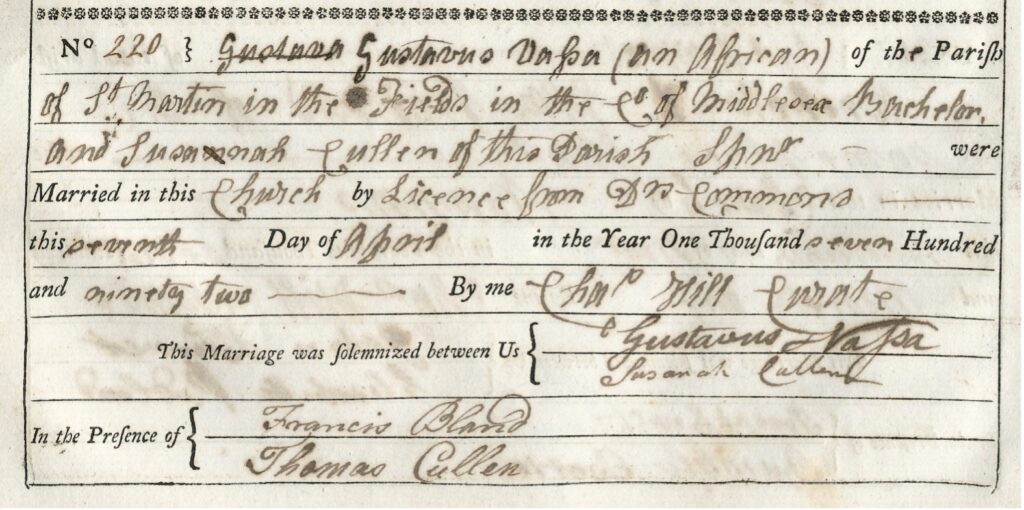 No 220 } Gustava Gustavus Vaſsa (an African) of the Pariſh
of St Martin in the Fields in the Co. of Middlesex Bachelor,
and Susannah Cullen of this Parish Spnr were
Married in this Church by Licence from Drs Commons
this seventh Day of April in the Year One Thouſand seven Hundred
and ninety two By me Chas Hill Curate
This Marriage was ſolemnized between Us { Gustavus Vaſsa
Susanah Cullen
In the Preſence of { Francis Bland
Thomas Cullen